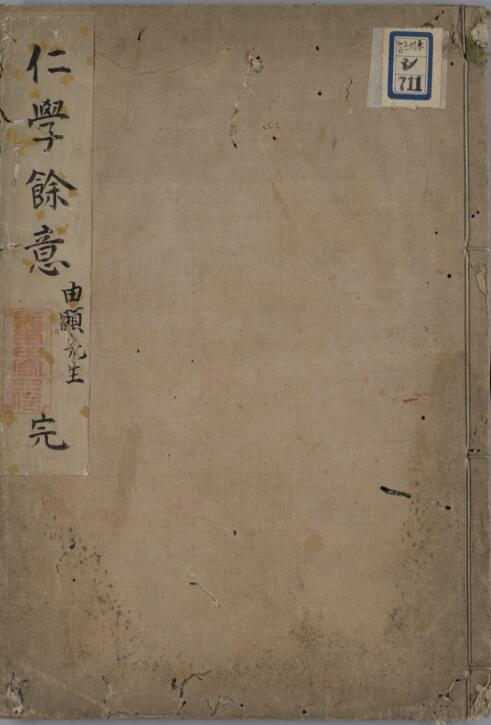 仁學餘意
由顧先生
完
レ
711